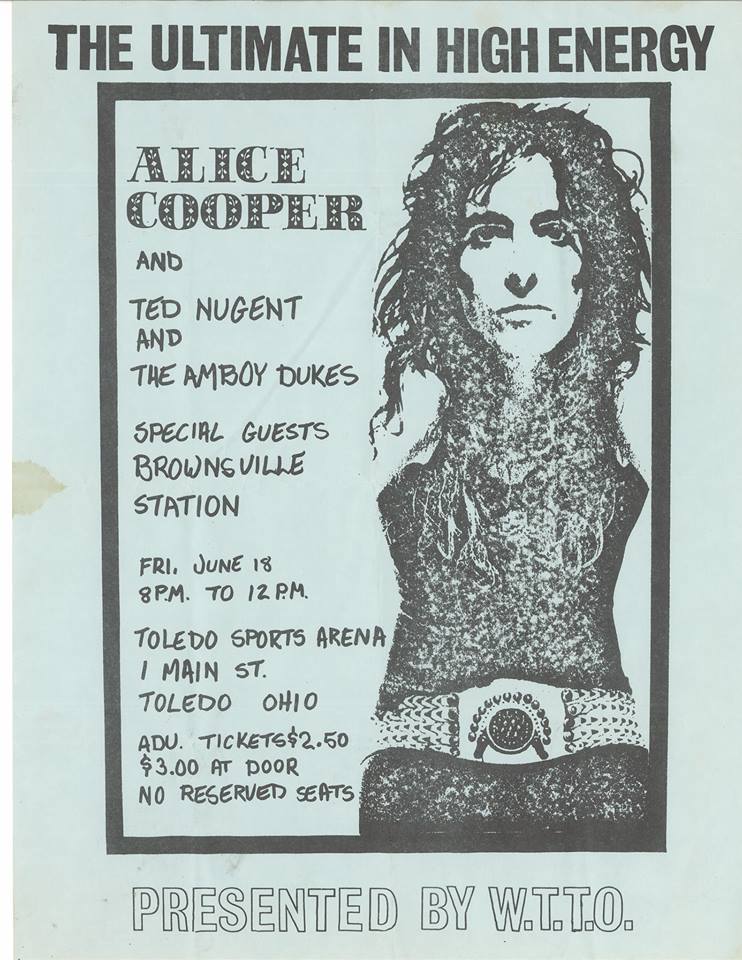 THE ULTIMATE IN HIGH ENERGY
ALICE
COOPER
AND
TED NUGENT
AND
THE AMBOY DUKES
SPECIAL GUESTS
BROWNSVILLE
STATION
FRI. JUNE 18
8P.M. TO 12 P.M.
TOLEDO SPORTS ARENA
1 MAIN ST.
TOLEDO OHIO
ADV. TICKETS $2.50
$3.00 AT DOOR
NO RESERVED SEATS
PRESENTED BY W.T.T.O.